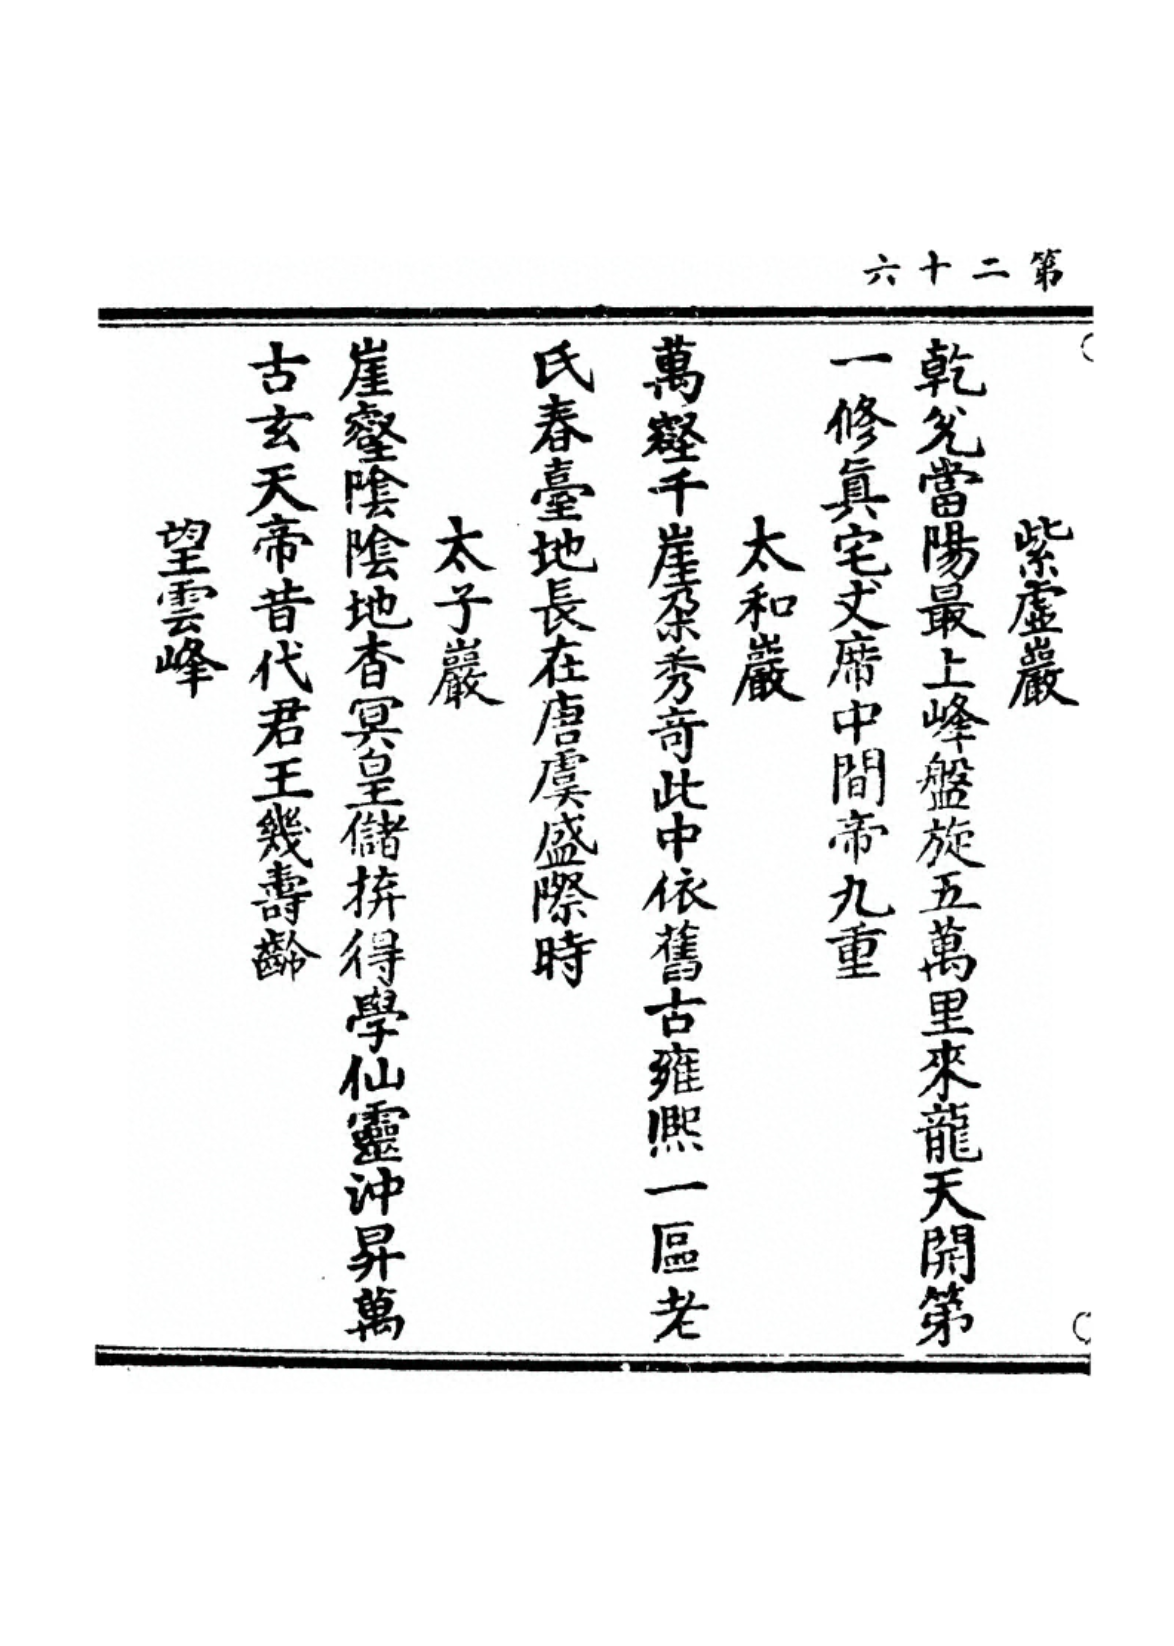 第二十六
紫虛巖
乾兊當陽最上峰盤旋五萬里來龍天開第
一修眞宅丈席中間帝九重
太和巖
萬壑千崖朶秀竒此中依舊古雍熈一區老
氏春臺地長在唐虞盛際時
太子巖
崖壑陰陰地杳冥皇儲拚得學仙靈沖昇萬
古玄天帝昔代君王幾壽齡
望雲峰